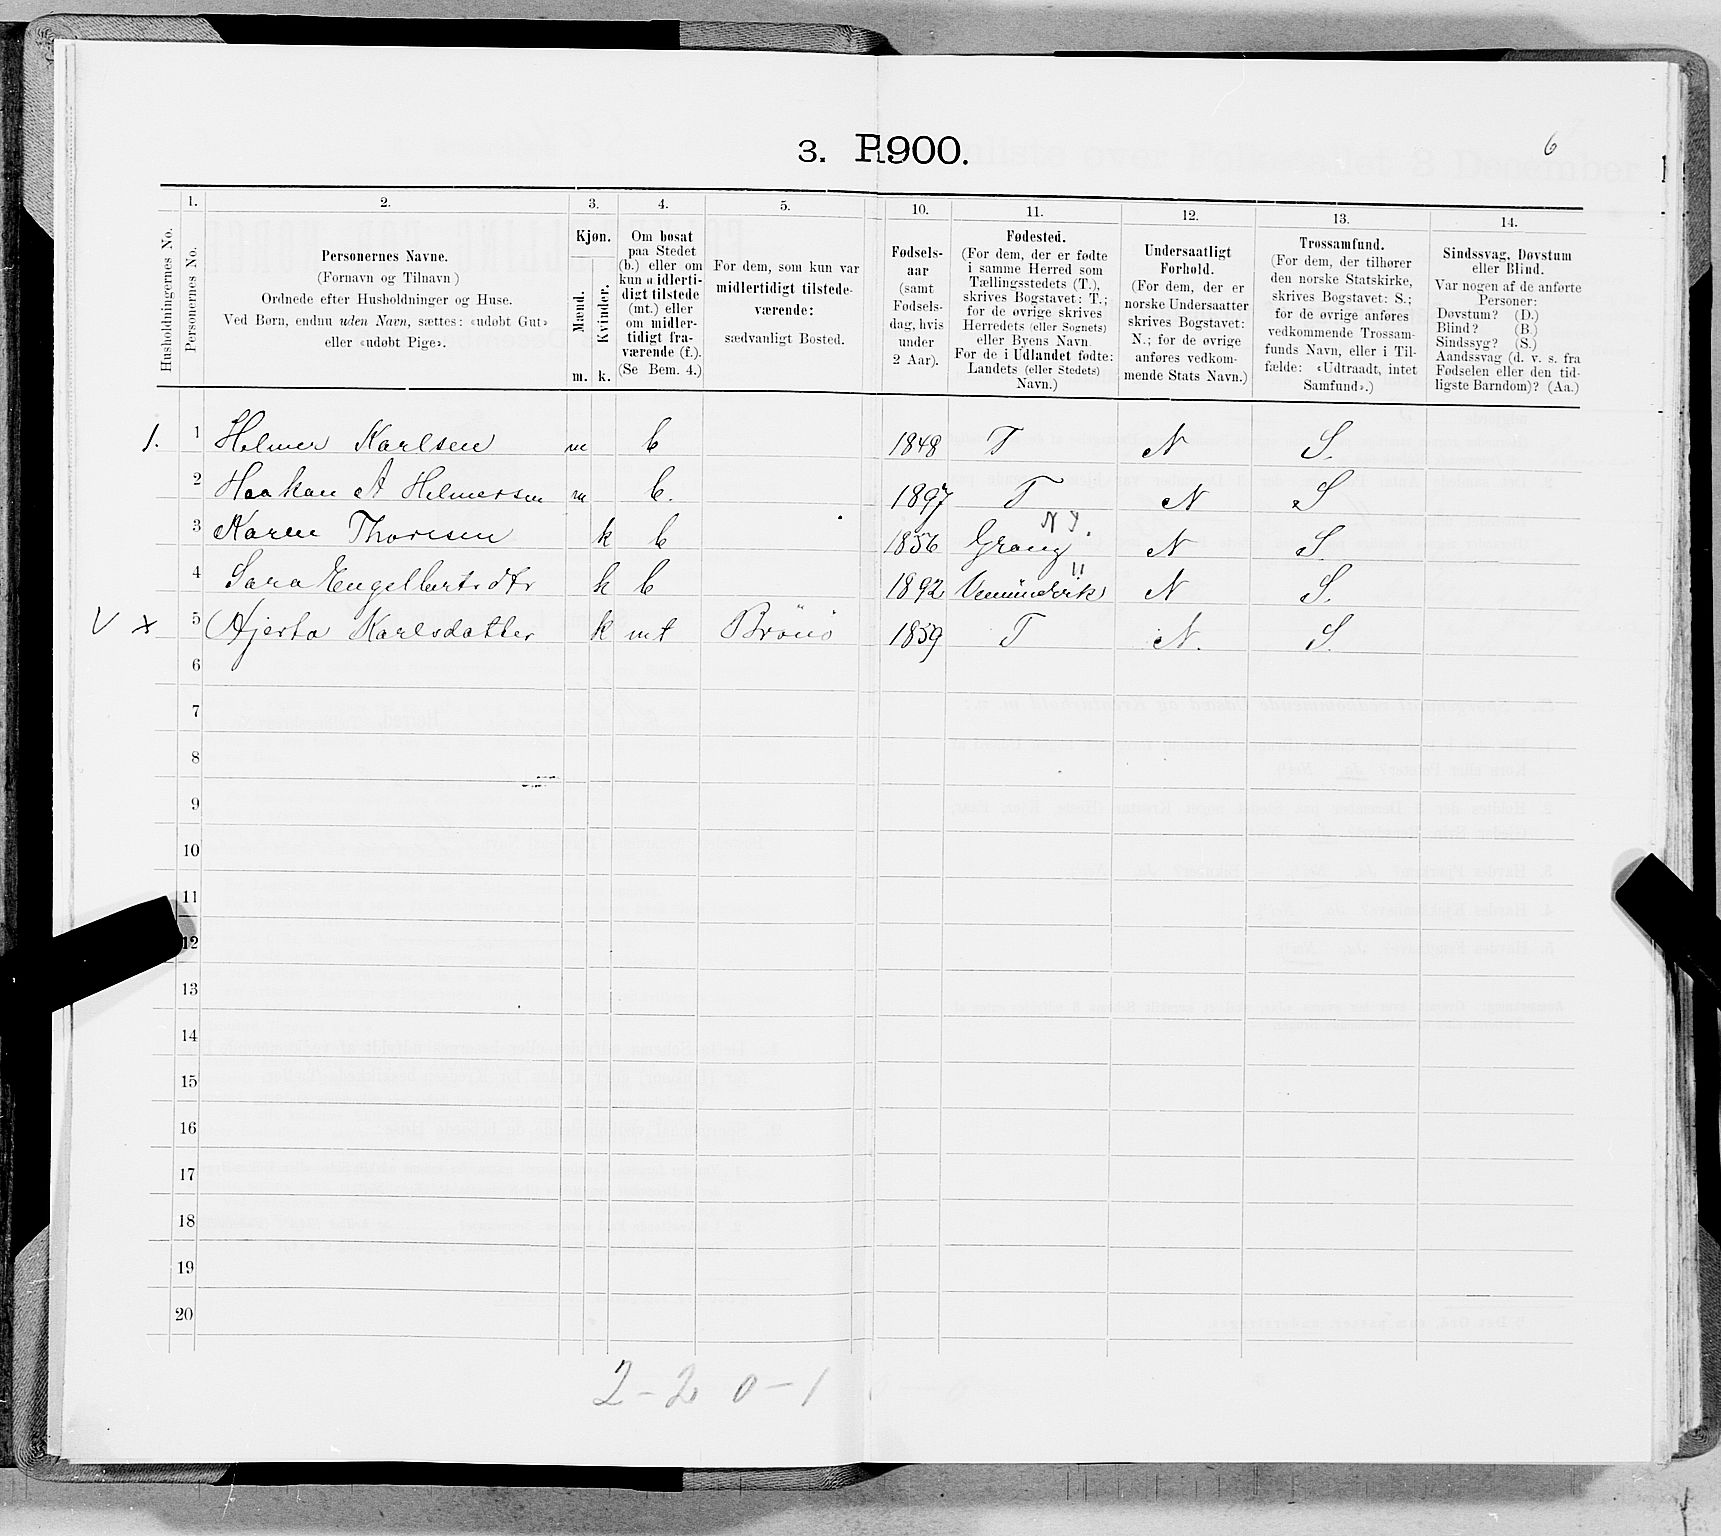 3. P.1900.
6
Husholdningernes No.
1.
Personernes No.
2.
Personernes Navne.
(Fornavn og Tilnavn)
Ordnede efter Husholdninger og Huse.
Ved Børn, endnu uden Navn, sættes: «udøbt Gut»
eller «udøbt Pige».
3.
Kjøn.
Mænd.
Kvinder.
m. k.
4.
Om bosat
paa Stedet
(b.) eller om
kun midlerti-
digt tilstede
(mt.) eller
om midler-
tidigt fra-
værende (f.).
(Se Bem. 4.)
5.
For dem, som kun var
midlertidigt tilstede-
værende:
sædvanligt Bosted.
10.
Fødsels-
aar
(samt
Fødsels-
dag, hvis
under
2 Aar).
11.
Fødested.
(For dem, der er fødte
i samme Herred som
Tællingsstedets (T.),
skrives Bogstavet: T.;
for de øvrige skrives
Herredets (eller Sognets)
eller Byens Navn.
For de i Udlandet fødte:
Landets (eller Stedets)
Navn.)
12.
Undersaatligt
Forhold.
(For dem, der er
norske Undersaatter
skrives Bogstavet:
N.; for de øvrige
anføres vedkom-
mende Stats Navn.)
13.
Trossamfund.
(For dem, der tilhører
den norske Statskirke,
skrives Bogstavet: S.;
for de øvrige anføres
vedkommende Trossam-
funds Navn, eller i Til-
fælde: «Udtraadt, intet
Samfund».)
14.
Sindssvag, Døvstum
eller Blind.
Var nogen af de anførte
Personer:
Døvstum? (D.)
Blind? (B.)
Sindssyg? (S.)
Aandssvag (d. v. s. fra
Fødselen eller den tid-
ligste Barndom)? (Aa.)
1. 1 Helmer Karlsen m b 1848 T N S.
2 Haakan A Helmersen m b. 1897 T N S
3 Karen Thoresen k b 1856 Grong N S
4 Sara Engelbertsdtr k b 1892 N S.
V x 5 Hjerta Karlsdatter k mt Brönö 1859 T N. S.
6
7
8
9
10
11
12
13
14
15
16
17
18
19
20
2-2 0-1 0-0